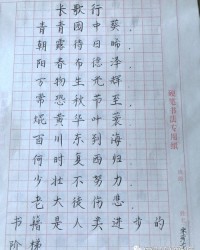 长歌行
青青园中葵.
朝露待日晞.
阳春布德泽.
万物生光辉.
常恐秋节至.
焜黄华叶衰.
百川东到海.
何时复西归.
少壮不努力.
老大徒伤悲.
书籍是人类进步的
阶梯
硬笔书法专用纸